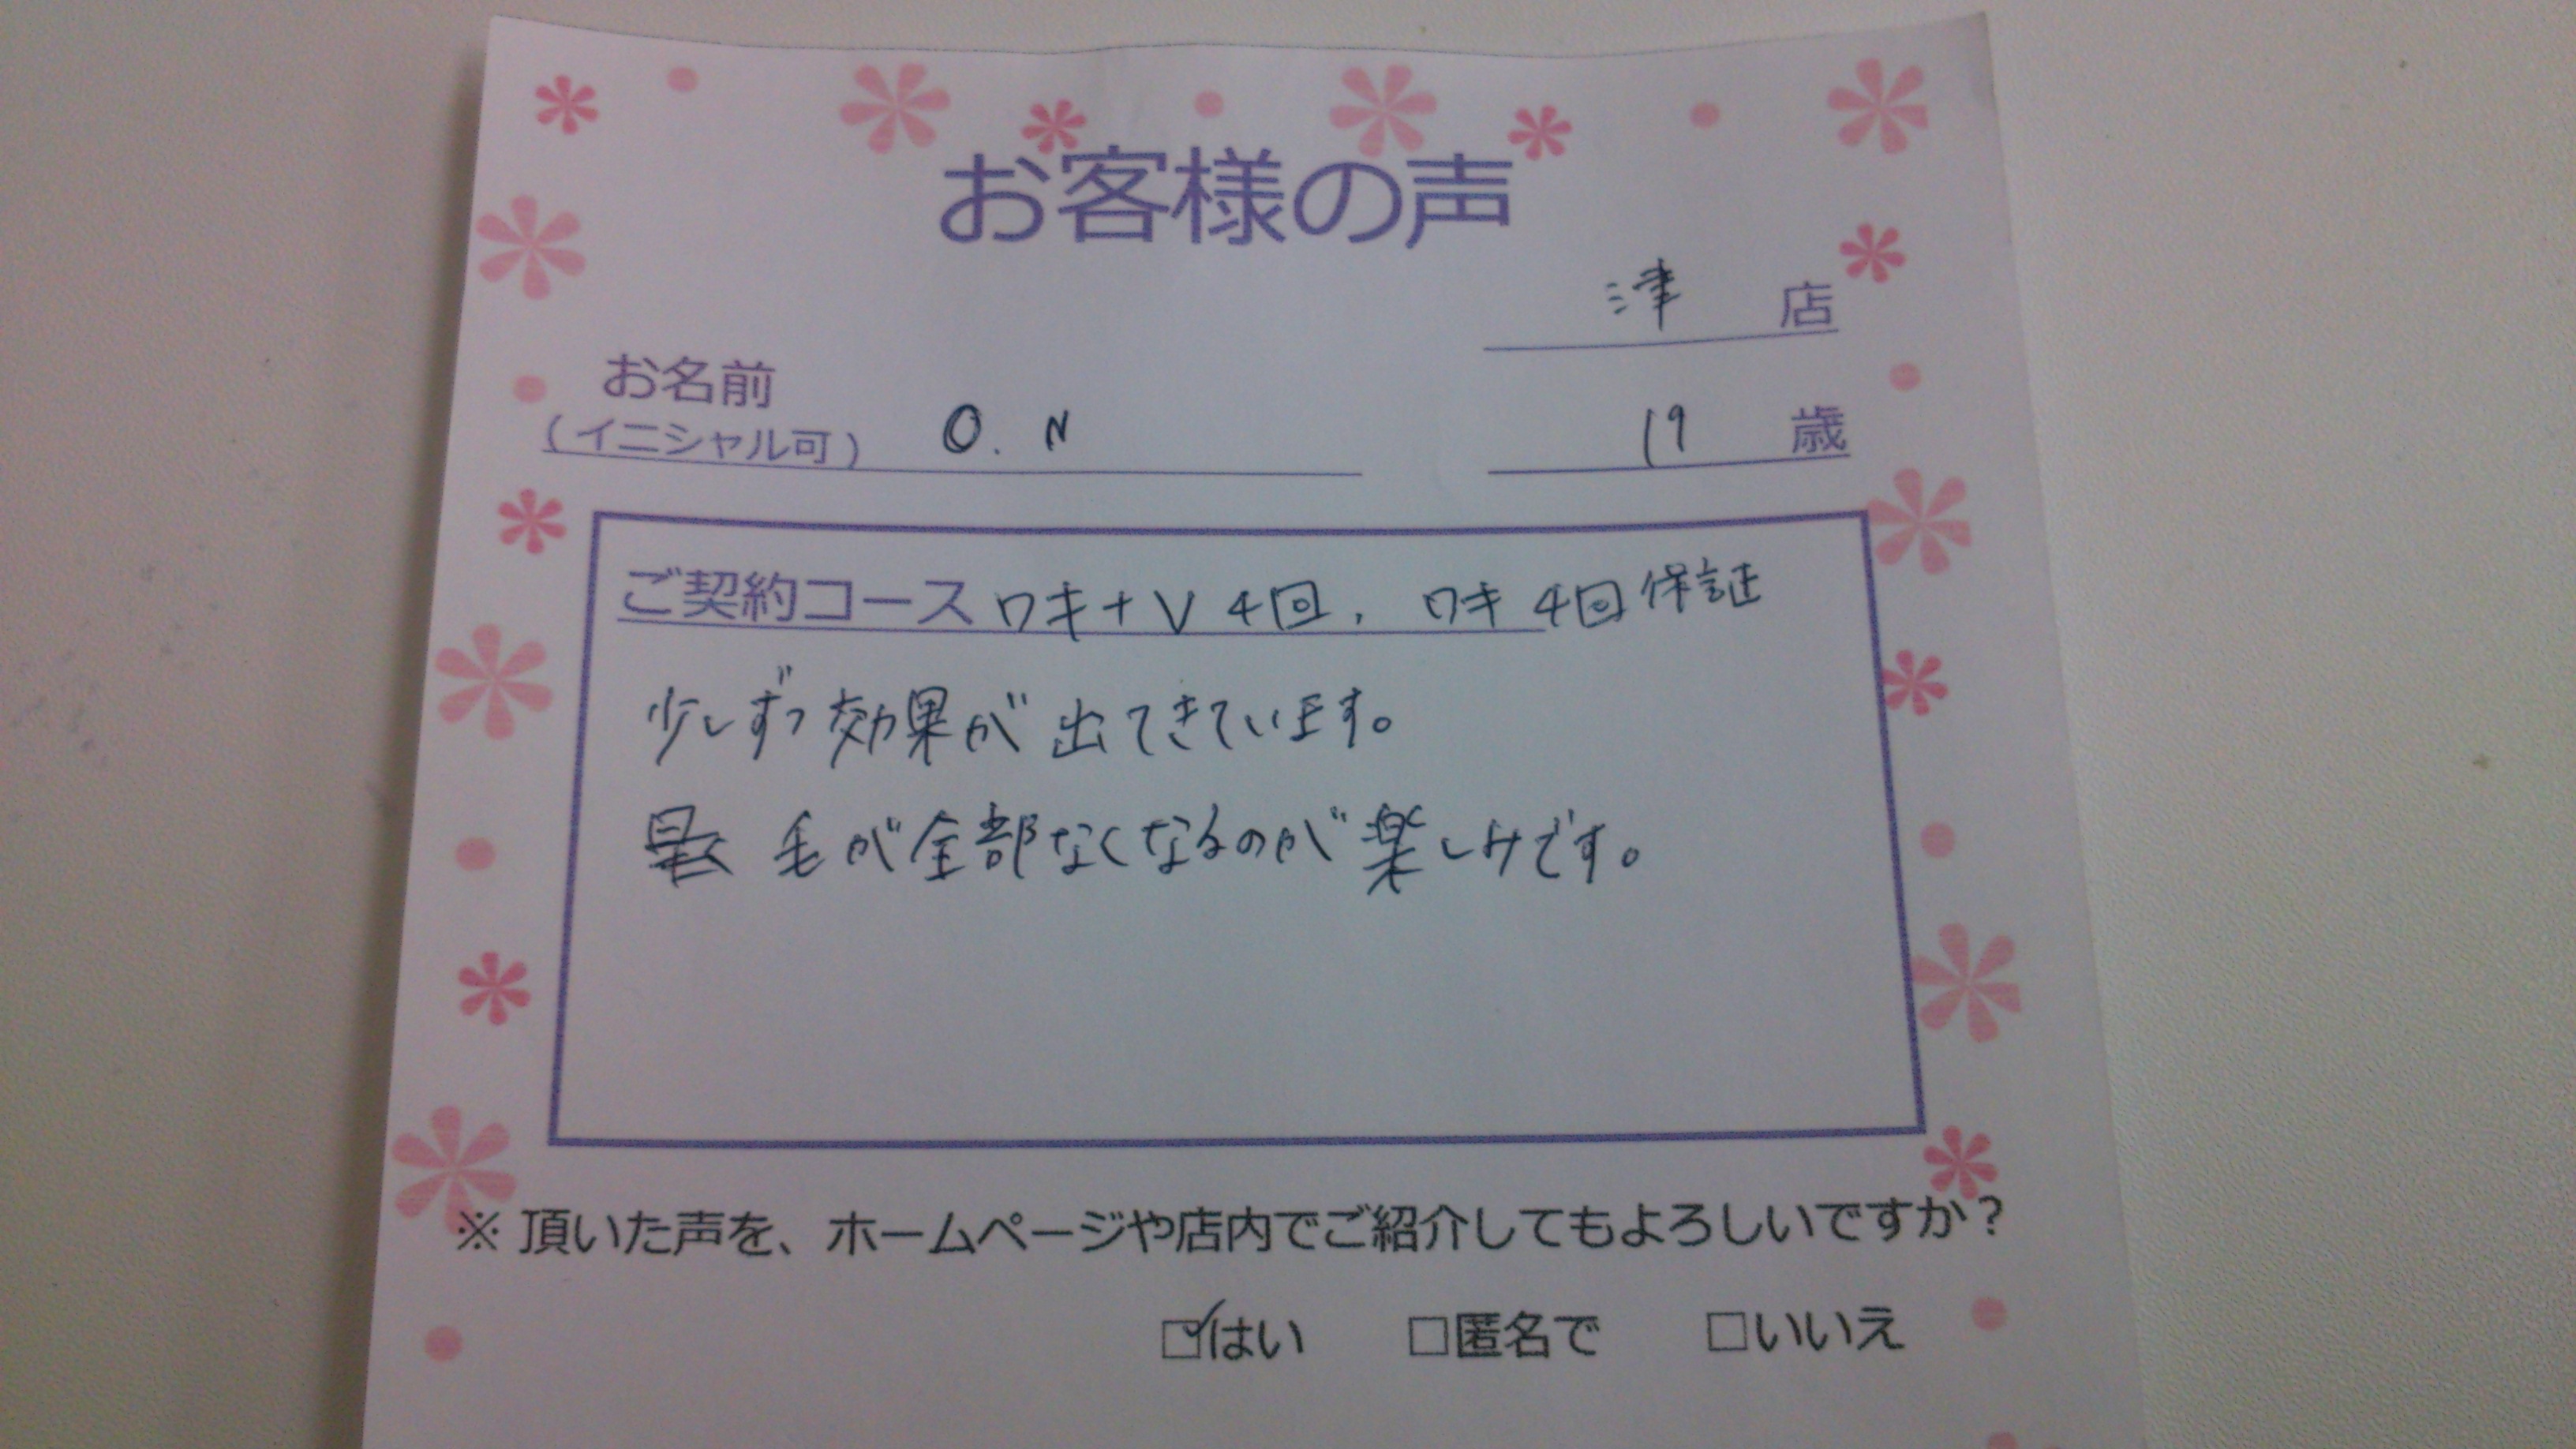 お客様の声
津 店
お名前
(イニシャル可) O. N 19 歳
ご契約コース ワキ+V 4回, ワキ 4回保証
少しずつ効果が出てきています。
毛が全部なくなるのが楽しみです。
※ 頂いた声を、ホームページや店内でご紹介してもよろしいですか?
☑はい □匿名で □いいえ